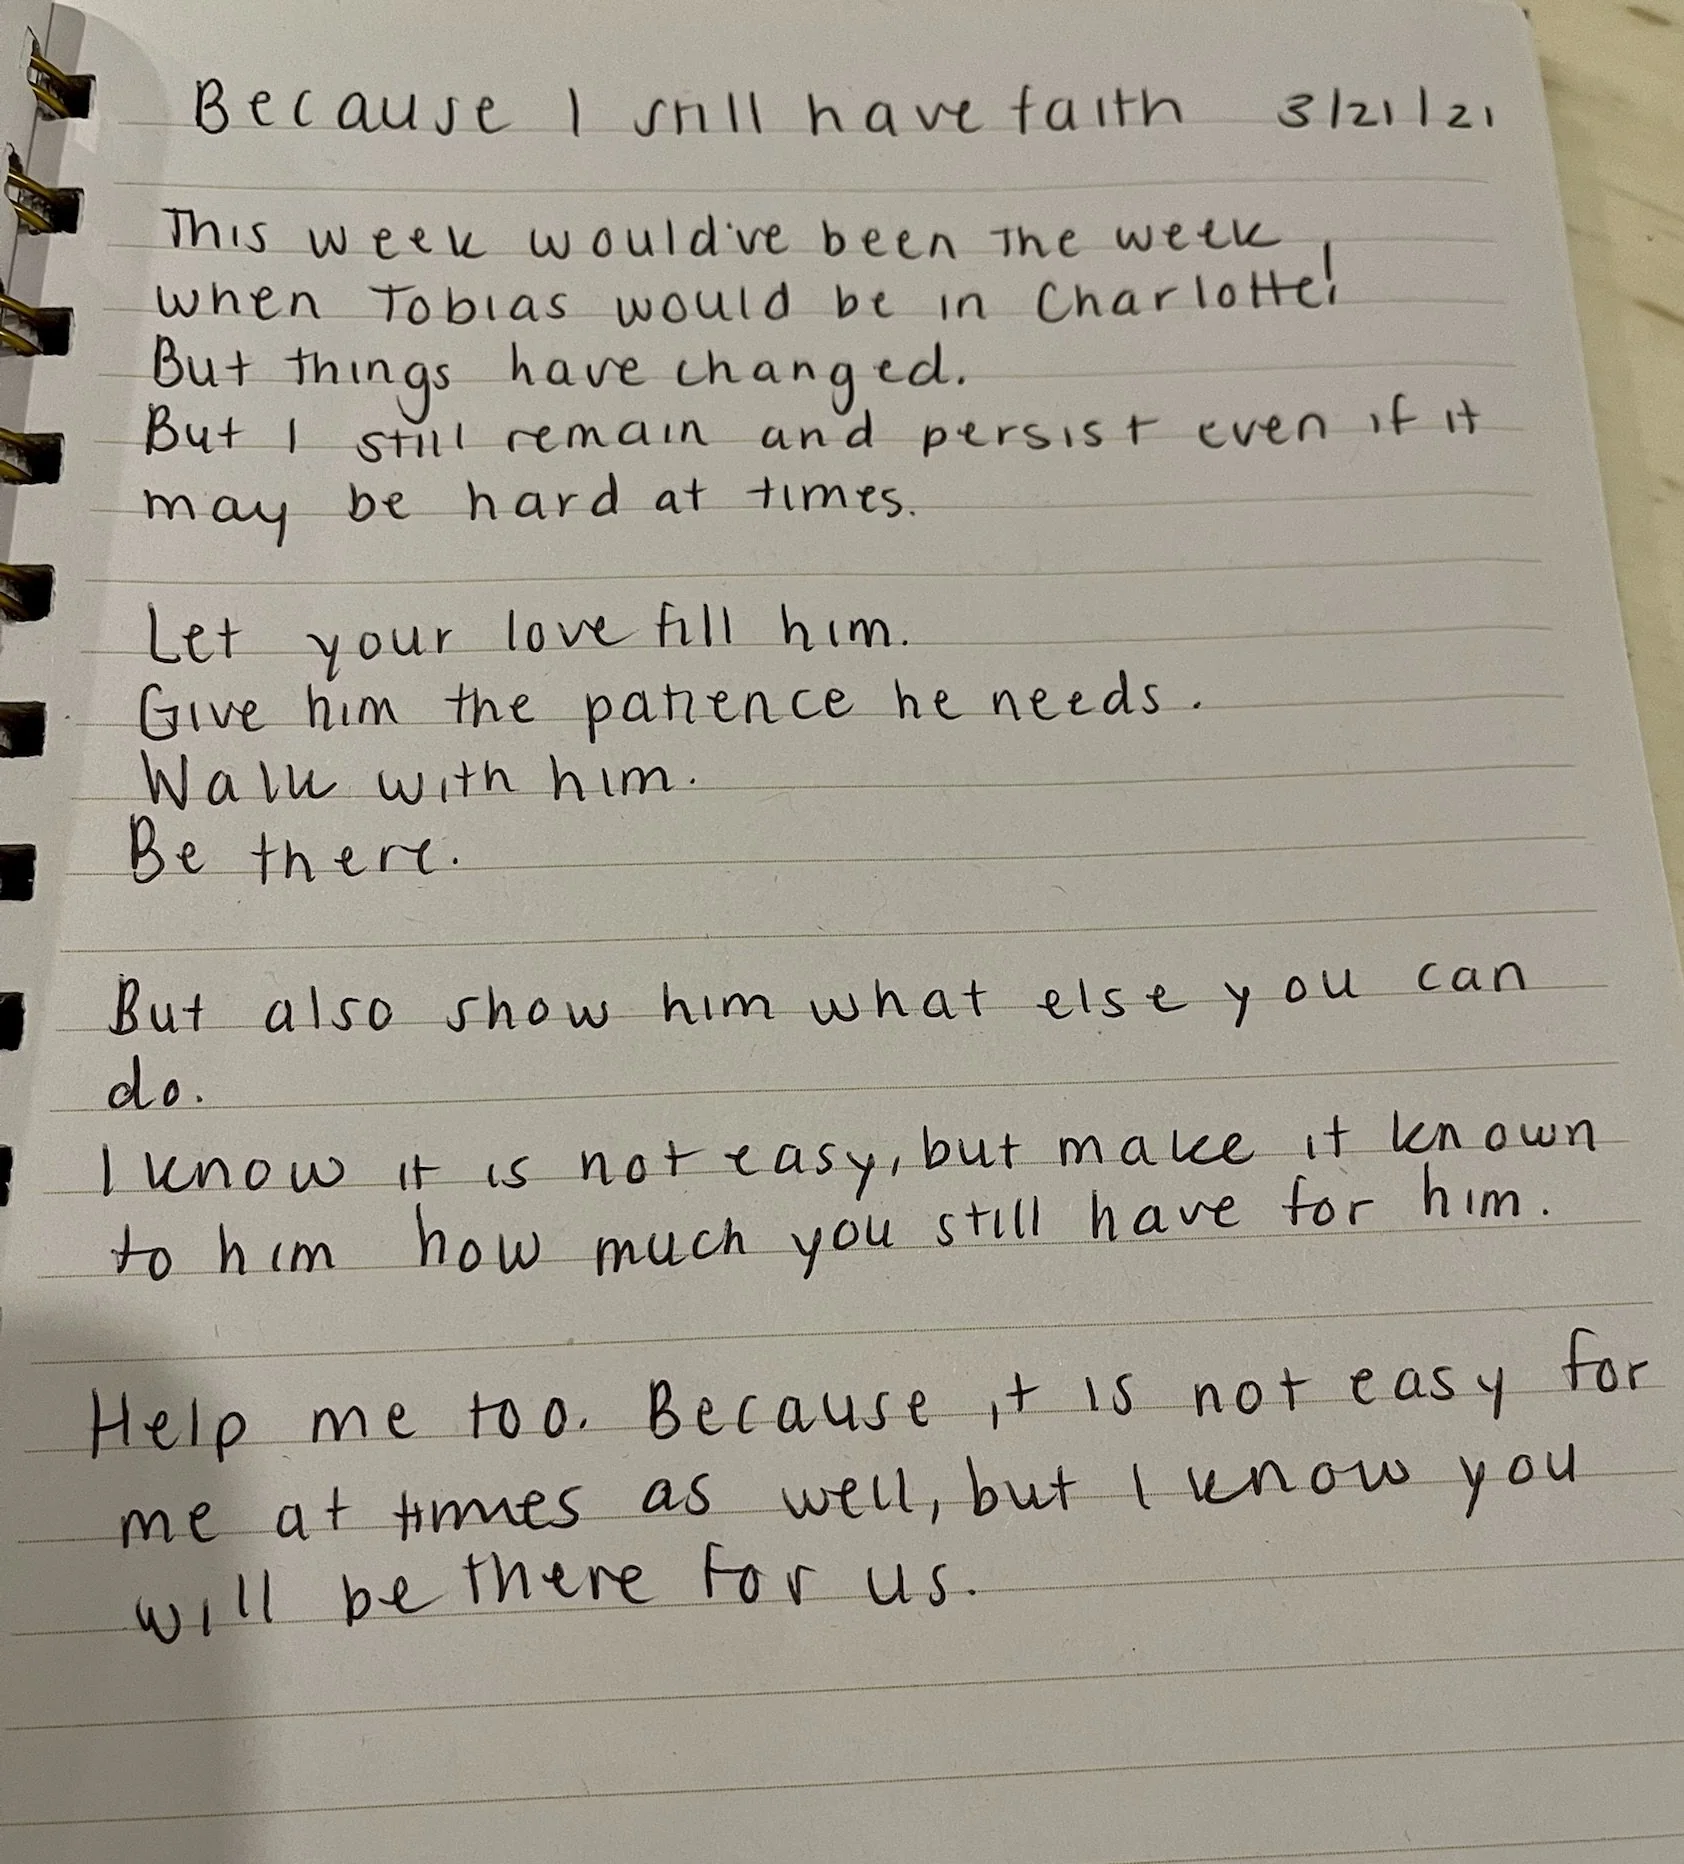 Because I still have faith 3/21/21
This week would've been the week
when Tobias would be in Charlotte!
But things have changed.
But I still remain and persist even if it
may be hard at times.
Let your love fill him.
Give him the patience he needs.
Walk with him.
Be there.
But also show him what else you can
do.
I know it is not easy, but make it known
to him how much you still have for him.
Help me too. Because it is not easy for
me at times as well, but I know you
will be there for us.